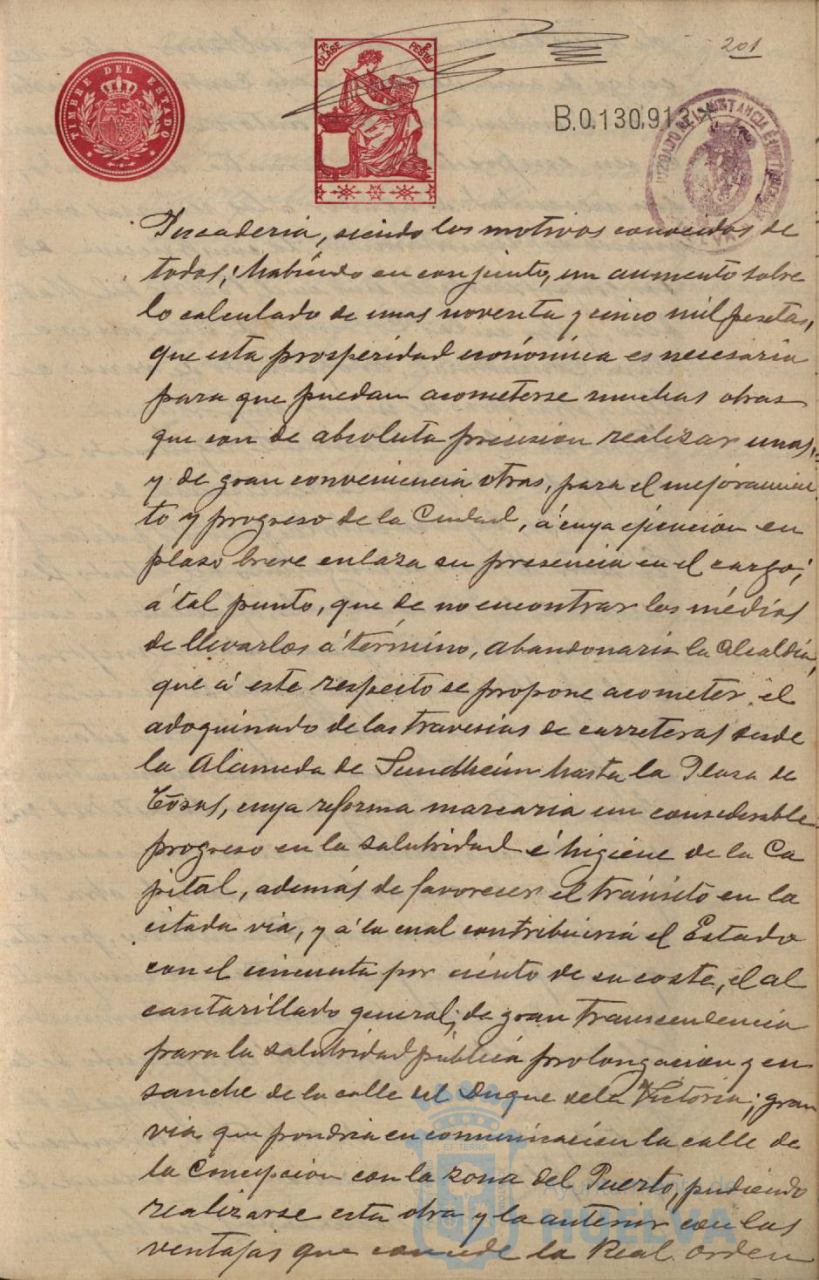 201
TIMBRE DEL ESTADO
7ª CLASE
PESETAS
B.0.130.912
JUZGADO DE 1ª INSTANCIA É INSTRUCCION
HUELVA
Pescaderia, siendo los motivos conocidos de
todos; habiendo en conjunto, un aumento sobre
lo calculado de unas noventa y cinco mil pesetas,
que esta prosperidad económica es necesaria
para que puedan acometerse muchas obras
que son de absoluta precision realizar unas,
y de gran conveniencia otras, para el mejoramien
to y progreso de la Ciudad, á cuya ejecucion en
plaso breve enlaza su presencia en el cargo;
á tal punto, que de no encontrar los médios
de llevarlos á término, abandonaria la Alcaldia,
que á este respecto se propone acometer el
adoquinado de las travesias de carreteras desde
la Alameda de Sundheim hasta la Plasa de
Toros, cuya reforma marcaria un considerable
progreso en la salubridad é higiene de la Ca
pital, además de favorecer el tránsito en la
citada via, y á la cual contribuiria el Estado
con el cincuenta por ciento de su coste, el al
cantarillado general, de gran transcendencia
para la salubridad pública prolongacion y en
sanche de la calle del Duque de la Victoria; gran
via que pondria en comunicación la calle de
la Concepcion con la zona del Puerto, pudiendo
realizarse esta obra y la anterior con las
ventajas que concede la Real orden
Ayuntamiento de
HUELVA